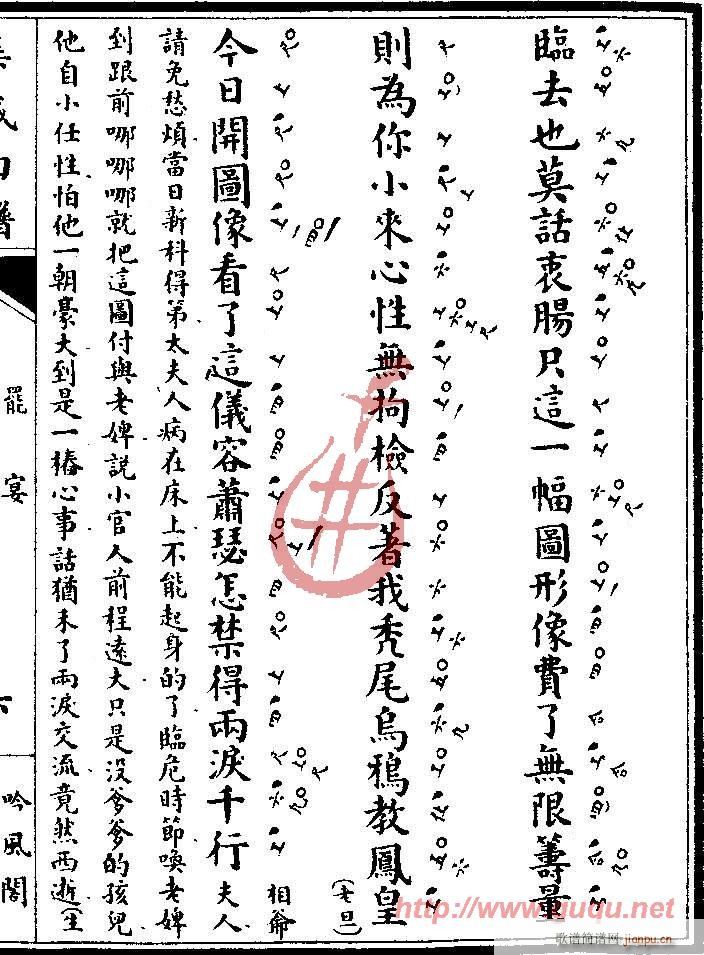 臨去也莫話衷腸只這一幅圖形像費了無限籌量
則為你小來心性無拘檢反著我禿尾烏鴉教鳳皇
(老旦)
今日開圖像看了這儀容蕭瑟怎禁得兩淚千行夫人
相爺
請免愁煩當日新科得第太夫人病在床上不能起身的了臨危時節喚老婢
到跟前哪哪哪就把這圖付與老婢說小官人前程遠大只是沒爹爹的孩兒
他自小任性怕他一朝豪大到是一樁心事話猶未了兩淚交流竟然西逝(生
集成曲譜
罷宴
六
吟風閣
http://www.guqu.net
歌谱简谱网
jianpu.cn